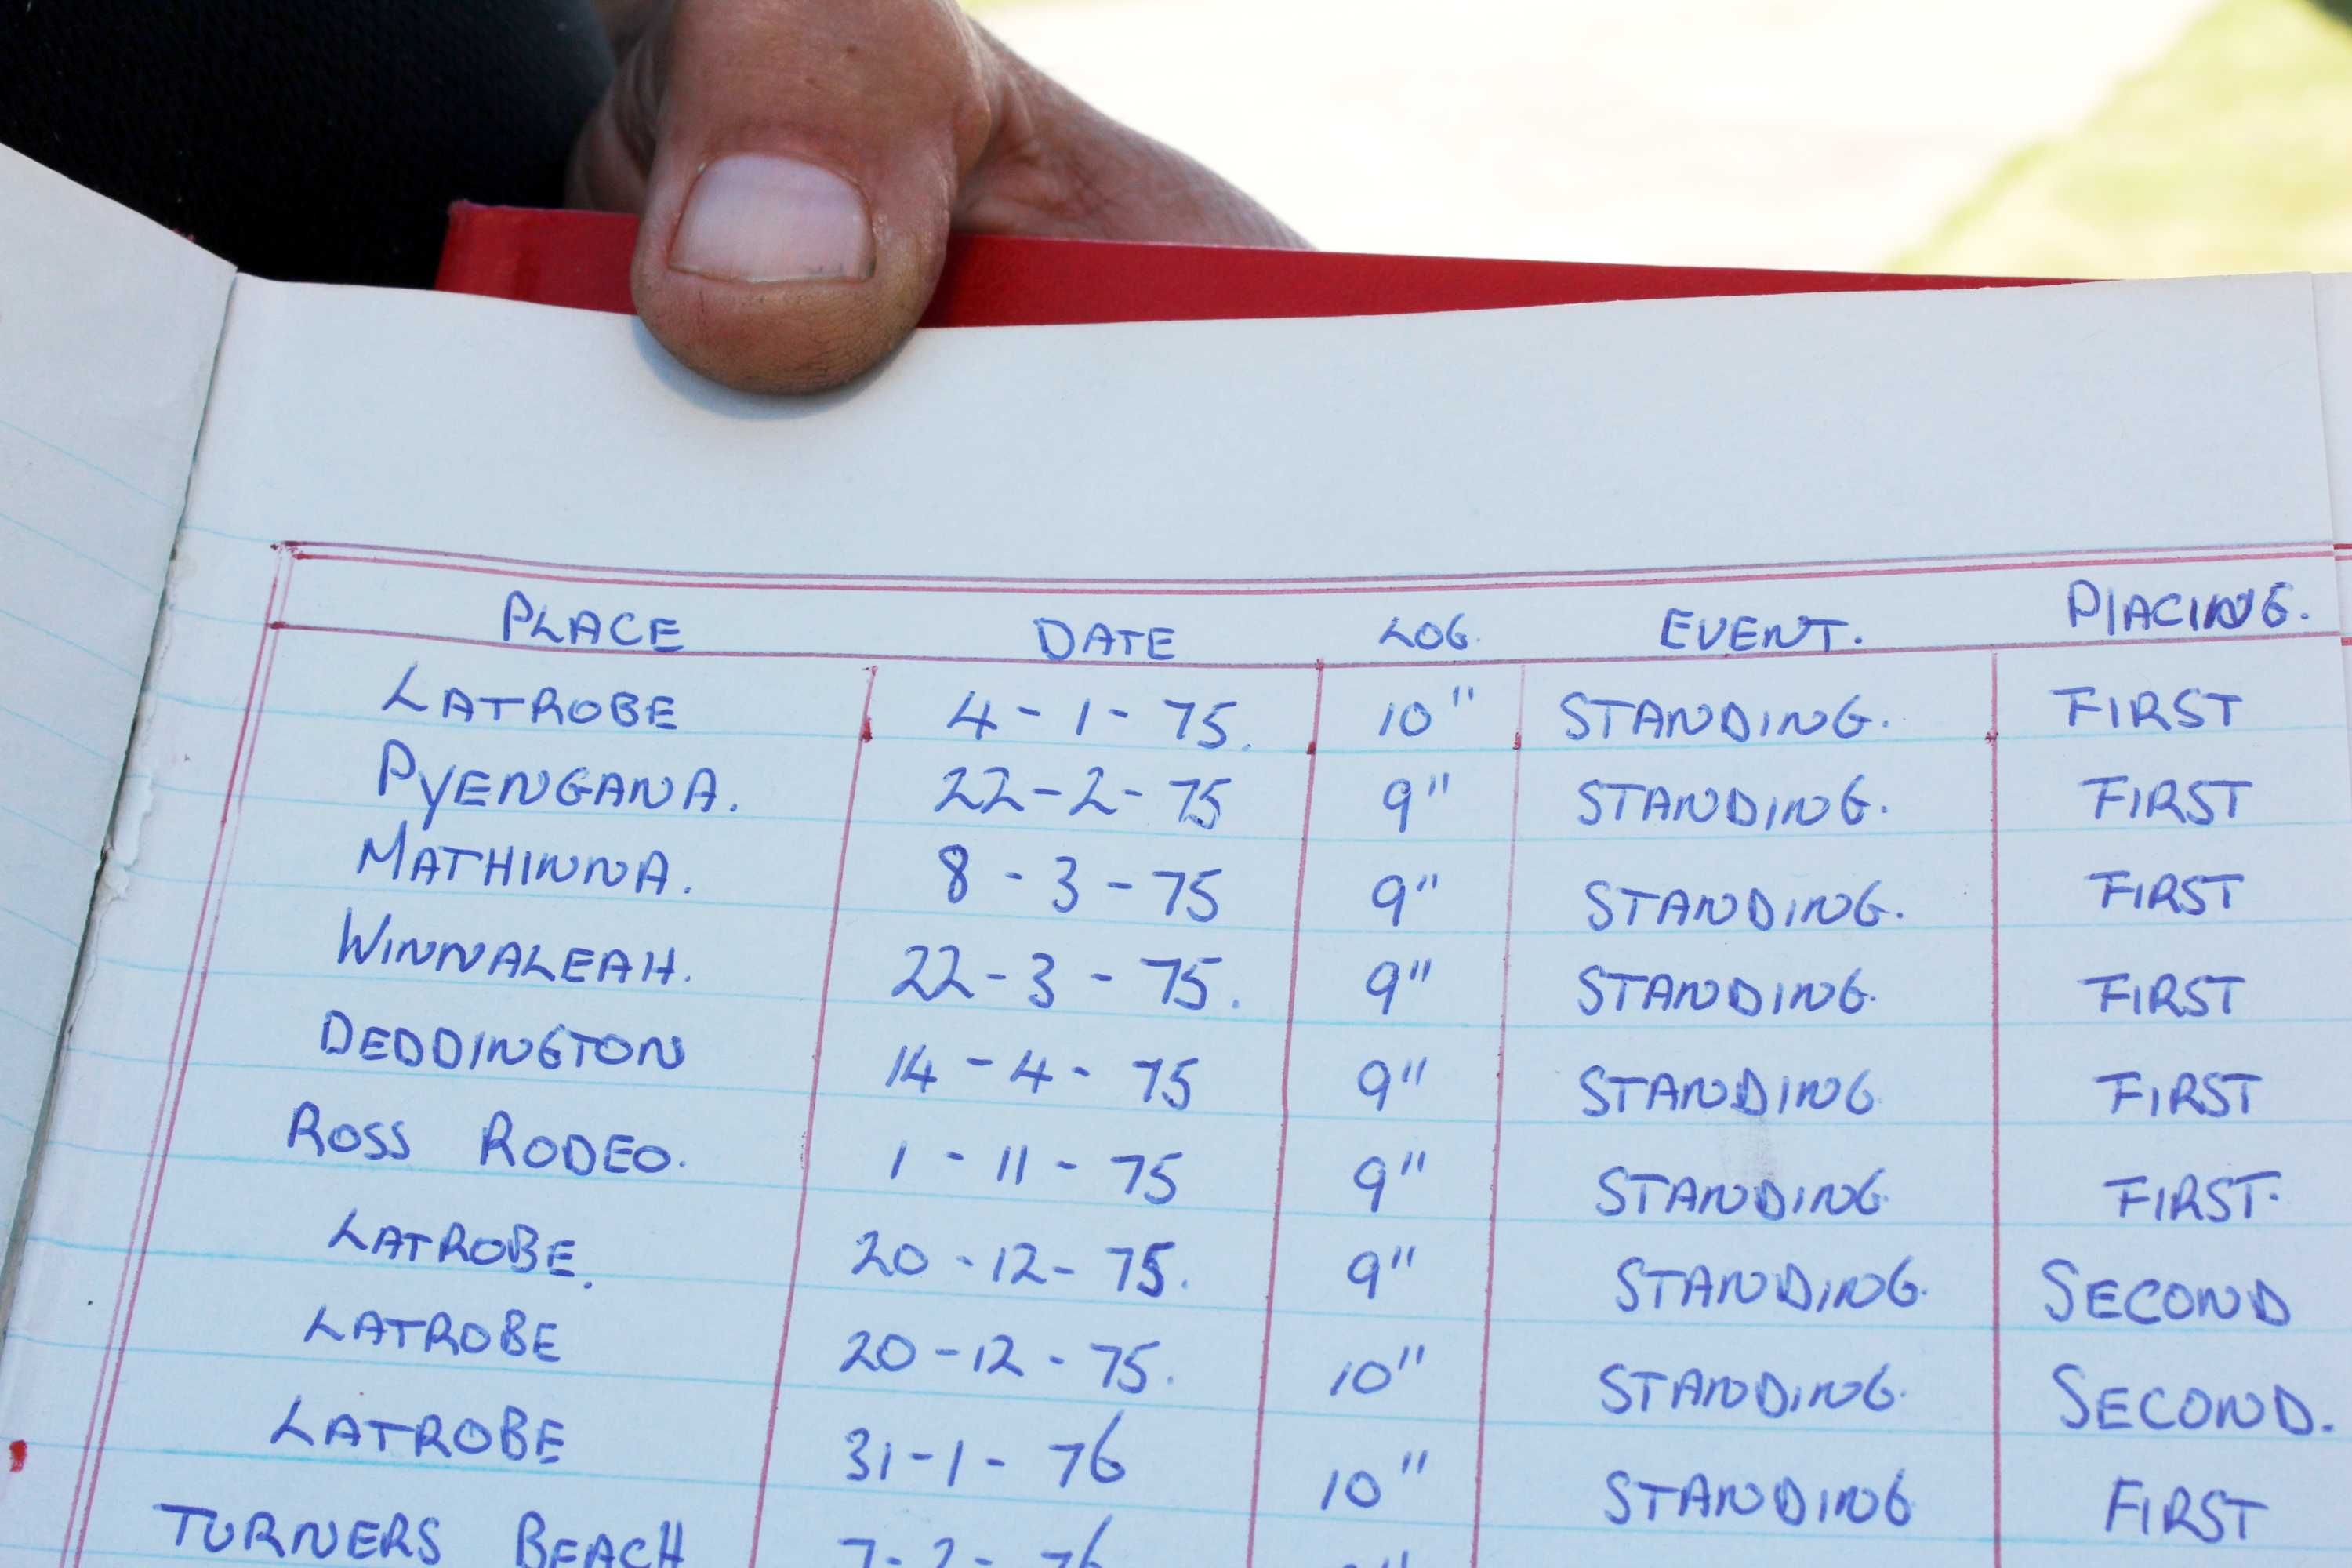 PLACE DATE LOG. EVENT. PLACING.
LATROBE 4-1-75. 10" STANDING. FIRST
PYENGANA. 22-2-75 9" STANDING. FIRST
MATHINNA. 8-3-75 9" STANDING. FIRST
WINNALEAH. 22-3-75. 9" STANDING. FIRST
DEDDINGTON 14-4-75 9" STANDING FIRST
ROSS RODEO. 1-11-75 9" STANDING. FIRST.
LATROBE. 20-12-75. 9" STANDING. SECOND
LATROBE 20-12-75. 10" STANDING. SECOND.
LATROBE 31-1-76 10" STANDING FIRST
TURNERS BEACH 7-2-76